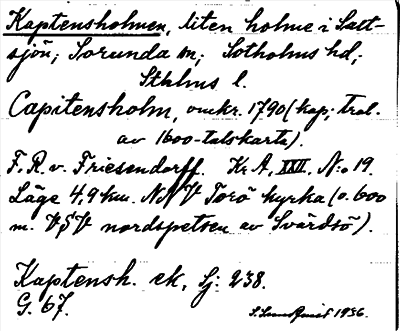 Kaptensholmen, liten holme i Satt-
sjön; Sorunda sn; Sotholms hd;
Sthlms l.
Capitensholm, omkr. 1790 (kop; tral.
av 1600-talskarta).
F. R. v. Friesendorff. Kr A, XXII, No 19.
Läge 4,9 km. NNV Torö kyrka (o. 600
m. VSV nordspetsen av Svärdsö).
Kaptensh. ek, Sj: 238.
G. 67.
S. Lundquist 1936.